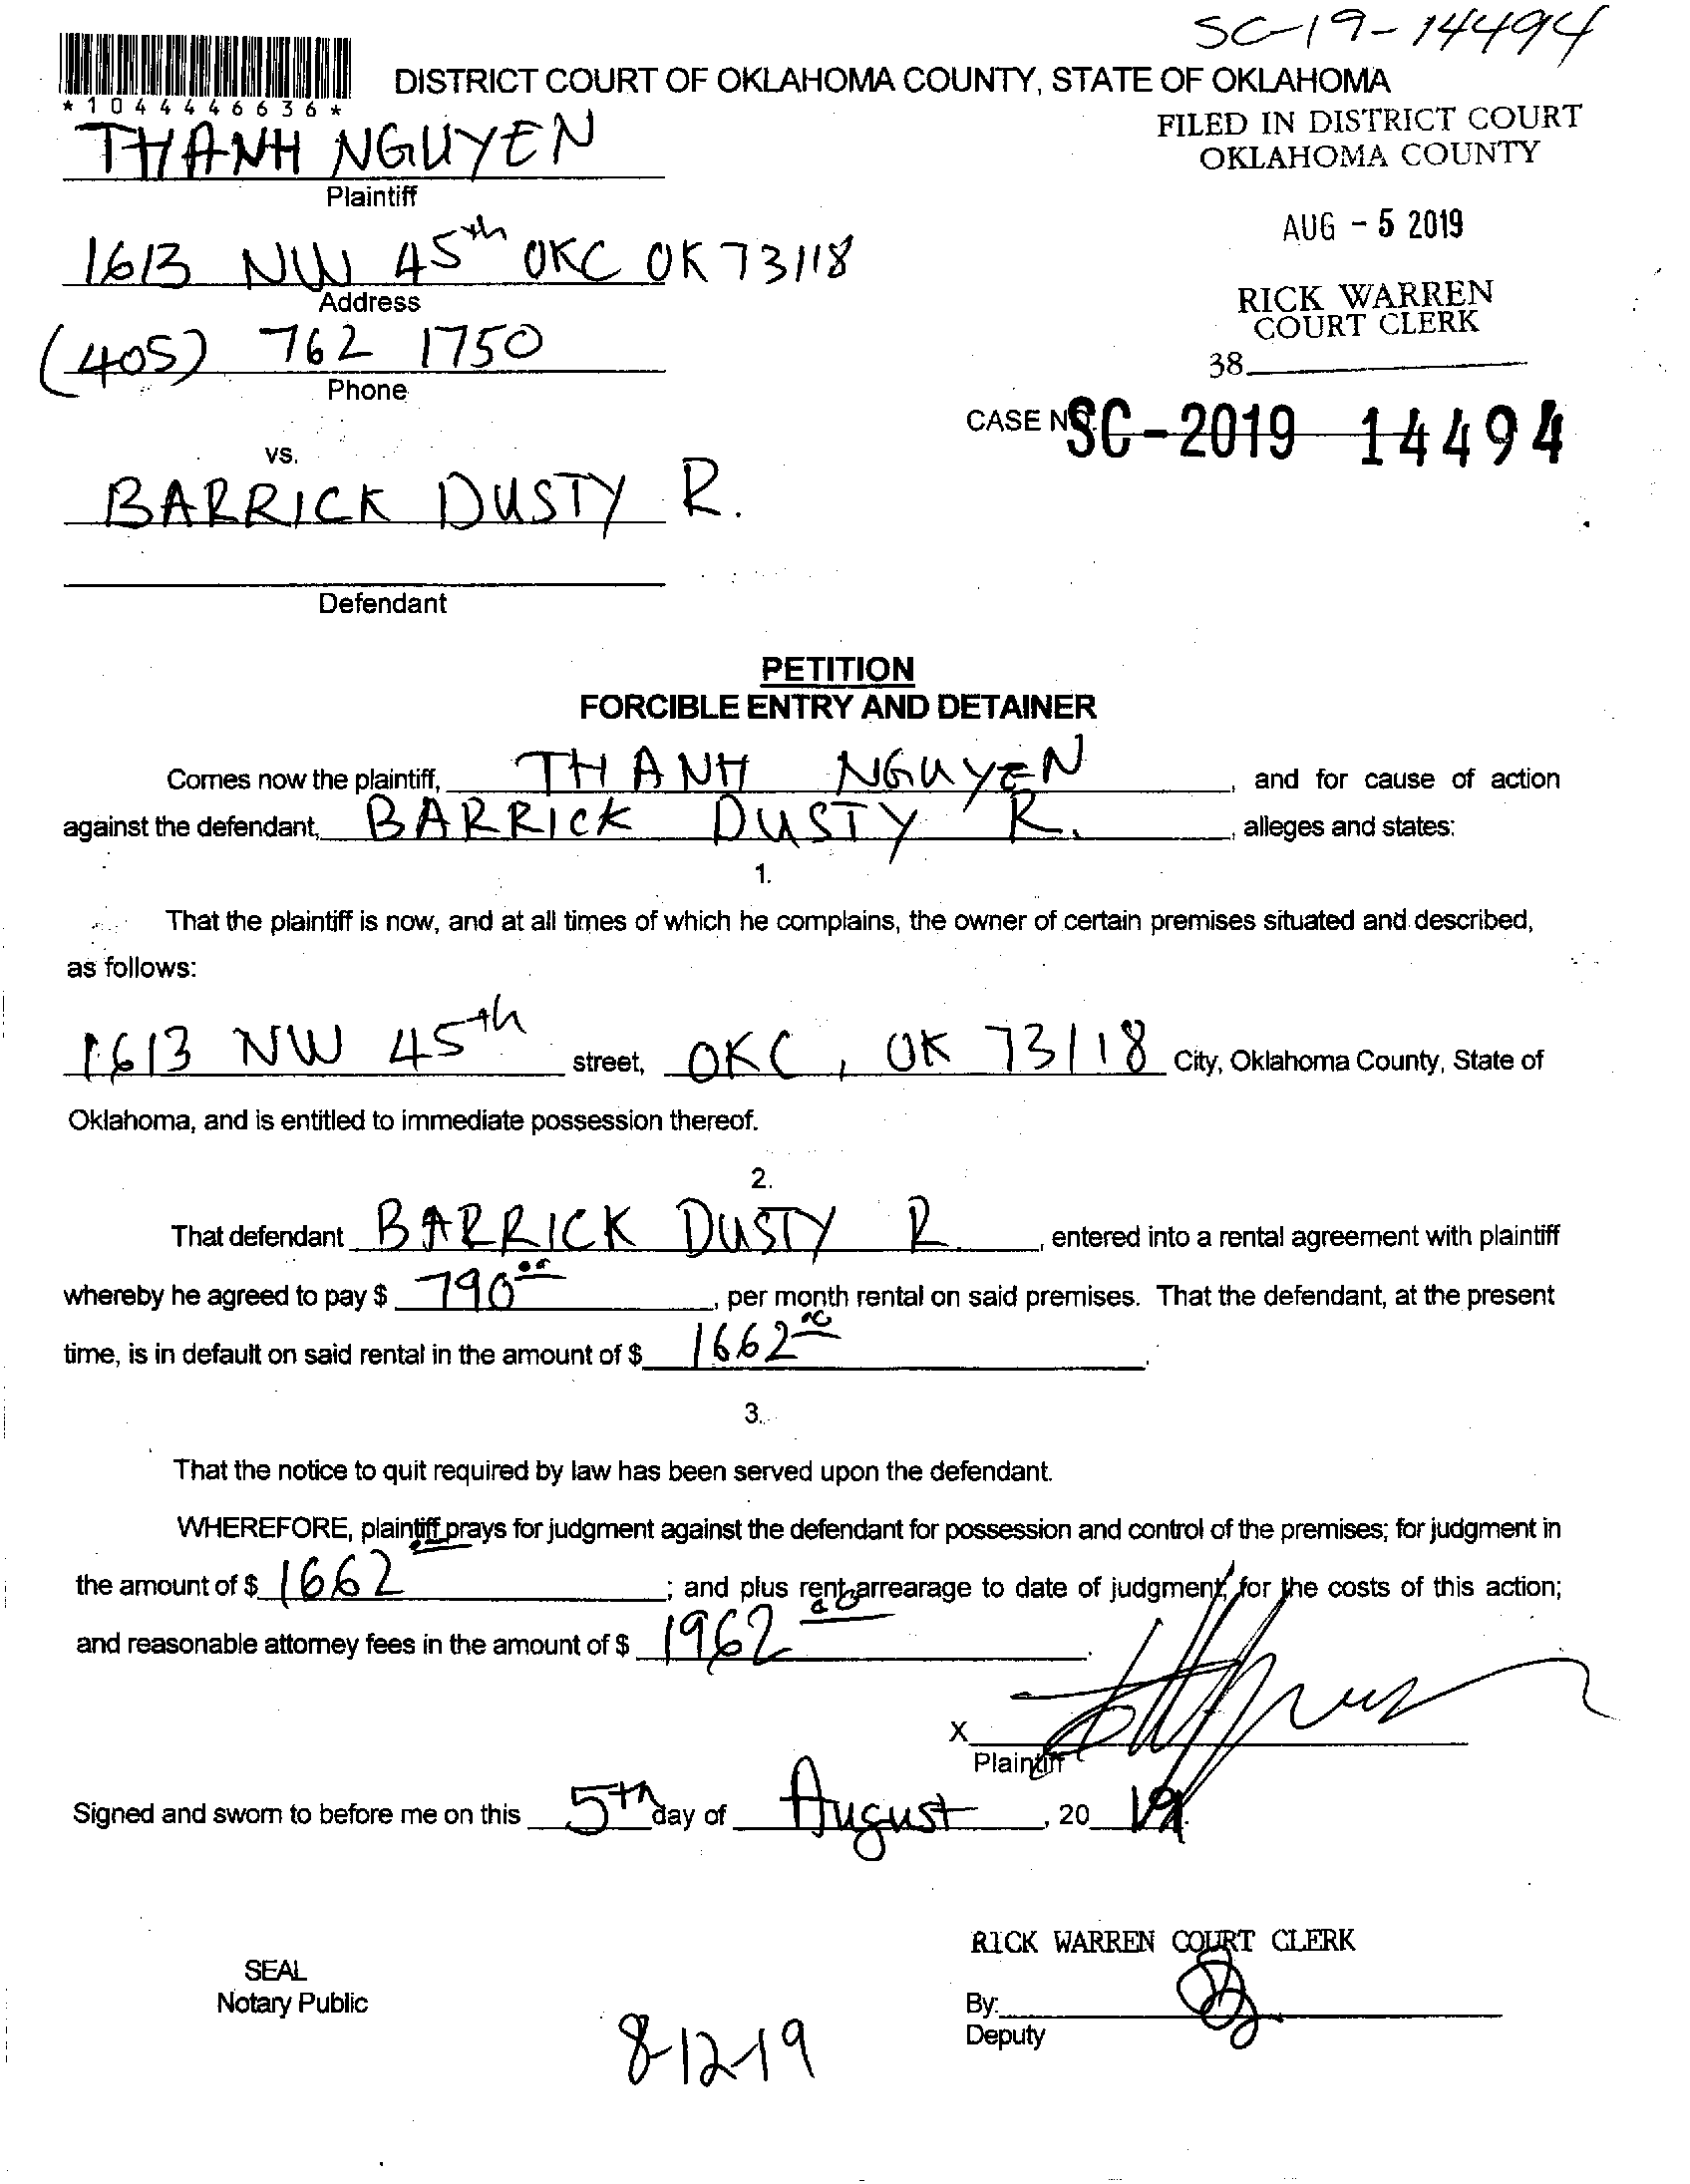 SC-19-14494
DISTRICT COURT OF OKLAHOMA COUNTY, STATE OF OKLAHOMA
*1044446636*
THANH NGUYEN
Plaintiff
FILED IN DISTRICT COURT
OKLAHOMA COUNTY
AUG - 5 2019
1613 NW 45th OKC OK 73118
Address
RICK WARREN
COURT CLERK
(405) 762 1750
Phone
38
CASE NO. SC-2019 14494
vs.
BARRICK DUSTY R.
Defendant
PETITION
FORCIBLE ENTRY AND DETAINER
Comes now the plaintiff, THANH NGUYEN, and for cause of action
against the defendant, BARRICK DUSTY R., alleges and states:
1.
That the plaintiff is now, and at all times of which he complains, the owner of certain premises situated and described,
as follows:
1613 NW 45th street, OKC, OK 73118 City, Oklahoma County, State of
Oklahoma, and is entitled to immediate possession thereof.
2.
That defendant BARRICK DUSTY R, entered into a rental agreement with plaintiff
whereby he agreed to pay $ 790 00, per month rental on said premises. That the defendant, at the present
time, is in default on said rental in the amount of $ 1662 00.
3.
That the notice to quit required by law has been served upon the defendant.
WHEREFORE, plaintiff prays for judgment against the defendant for possession and control of the premises; for judgment in
the amount of $ 1662 00; and plus rent arrearage to date of judgment, for the costs of this action;
and reasonable attorney fees in the amount of $ 1962 00.
X
Plaintiff
Signed and sworn to before me on this 5th day of August, 20 19.
RICK WARREN COURT CLERK
SEAL
Notary Public
By:
Deputy
8-12-19